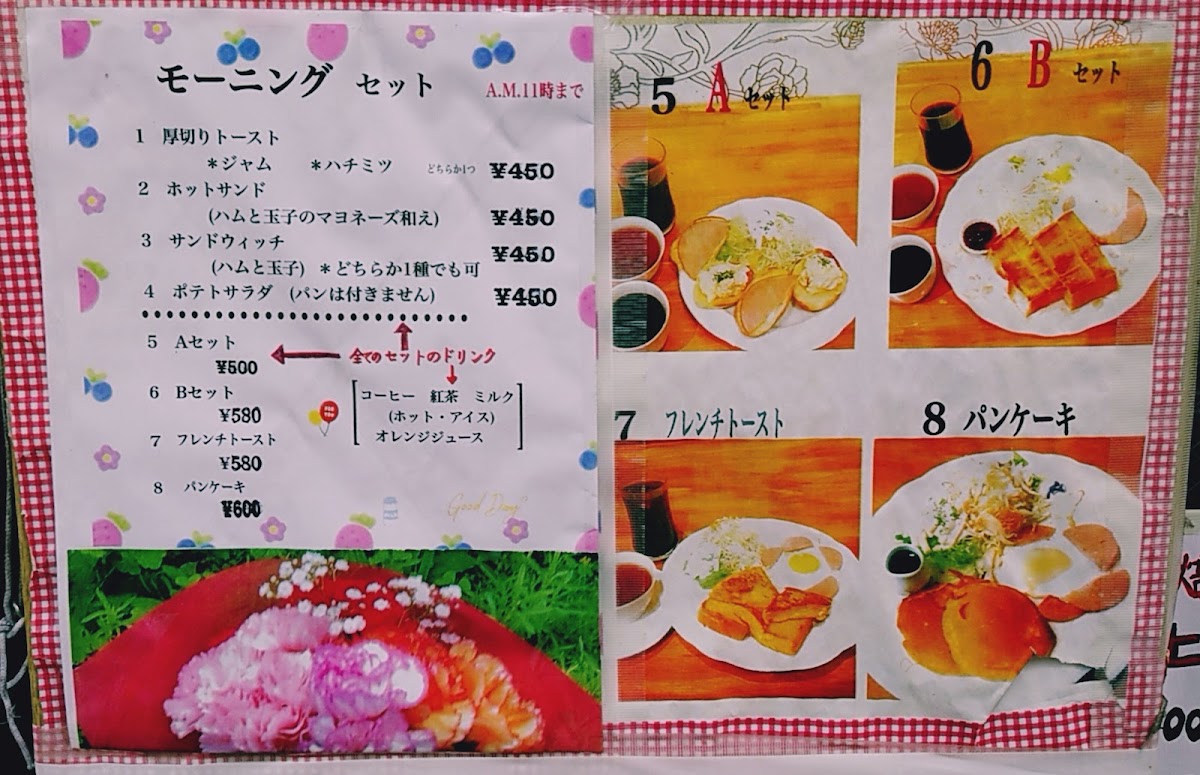 モーニング セット A.M.11時まで
1 厚切りトースト
＊ジャム ＊ハチミツ どちらか1つ ¥450
2 ホットサンド
(ハムと玉子のマヨネーズ和え) ¥450
3 サンドウィッチ
(ハムと玉子) ＊どちらか1種でも可 ¥450
4 ポテトサラダ (パンは付きません) ¥450
5 Aセット
¥500
全てのセットのドリンク
6 Bセット
¥580
コーヒー 紅茶 ミルク
(ホット・アイス)
オレンジジュース
7 フレンチトースト
¥580
8 パンケーキ
¥600
5 A セット
6 B セット
7 フレンチトースト
8 パンケーキ